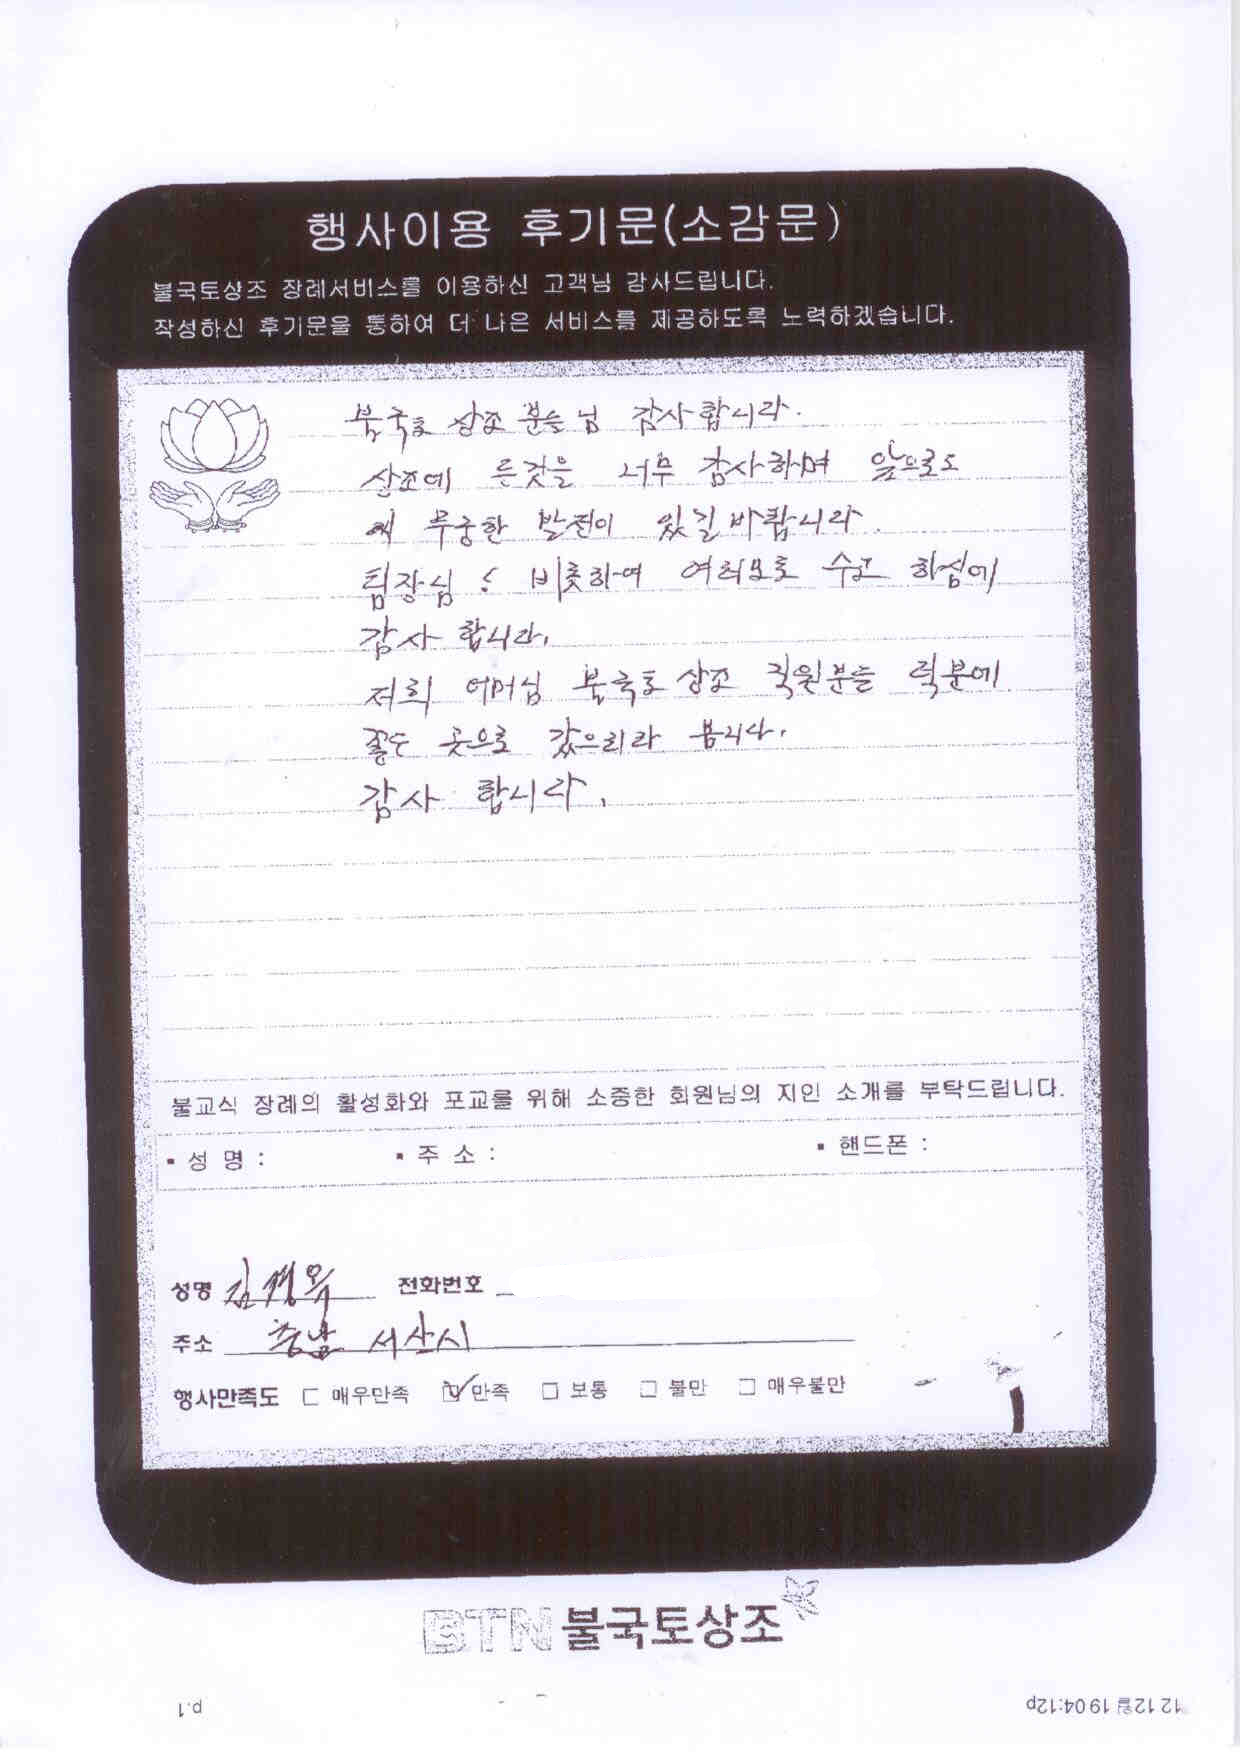 행사이용 후기문(소감문)
불국토상조 장례서비스를 이용하신 고객님 감사드립니다.
작성하신 후기문을 통하여 더 나은 서비스를 제공하도록 노력하겠습니다.
불국토 상조 분들님 감사합니다.
상조에 든것을 너무 감사하며 앞으로도
무궁한 발전이 있길 바랍니다.
팀장님 비롯하여 여러모로 수고 하심에
감사 합니다.
저희 어머님 불국토 상조 직원분들 덕분에
좋은 곳으로 갔으리라 봅니다.
감사 합니다.
불교식 장례의 활성화와 포교를 위해 소중한 회원님의 지인 소개를 부탁드립니다.
▪ 성 명 : ▪ 주 소 : ▪ 핸드폰 :
성명 김경옥 전화번호
주소 충남 서산시
행사만족도 □ 매우만족 ☑ 만족 □ 보통 □ 불만 □ 매우불만
BTN 불국토상조
12 12월 19 04:12p p.1